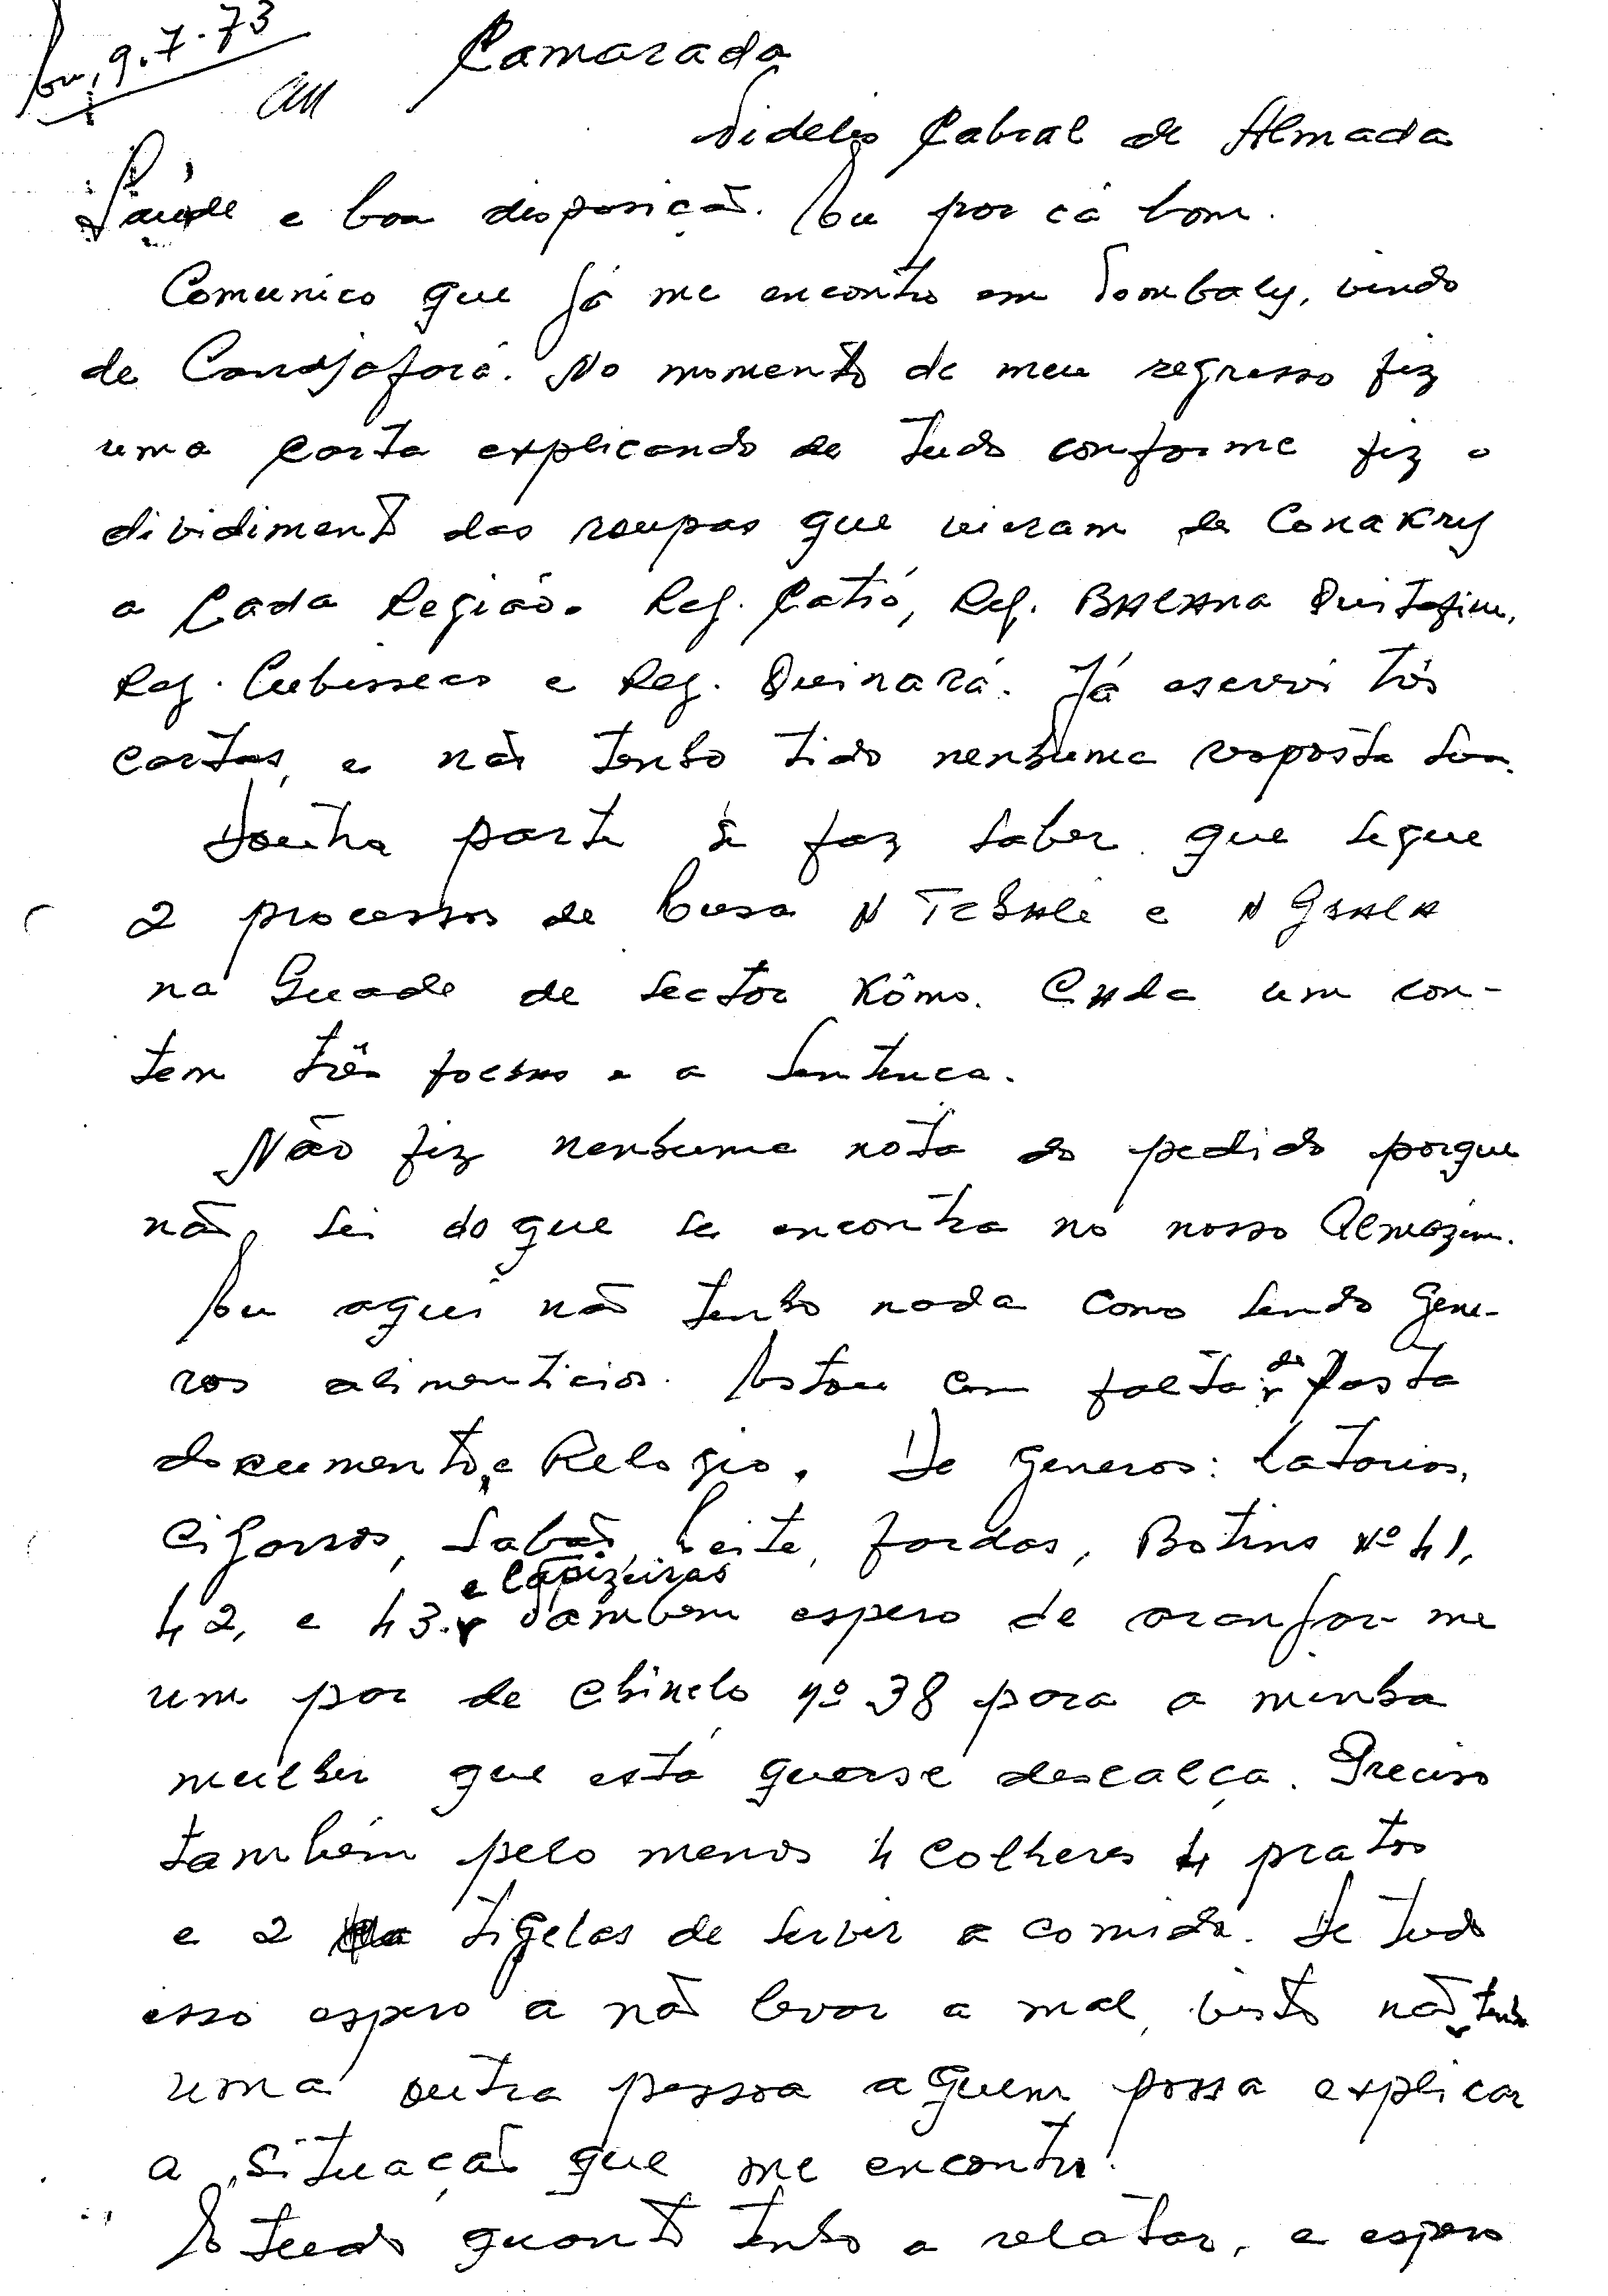 Em, 9.7.73
Camarada
Fidelis Cabral de Almada
Saúde e boa disposição. Eu por cá bom.
Comunico que já me encontro em Tombaly, vindo
de Candjafará. No momento de meu regresso fiz
uma carta explicando de tudo conforme fiz o
dividimento das roupas que vieram de Conakry
a Cada Região. Reg. Catió, Reg. BALANA Quitafine,
Reg. Cubisseco e Reg. Quinará. Já escrevi três
cartas, e não tenho tido nenhuma resposta sua.
Doutra parte se faz saber que segue
2 processos de Cusa N'TCHALÉ e N'GHALA
na Guade de Sector Kômo. Cada um con-
tem três folhas e a Sentença.
Não fiz nenhuma nota do pedido porque
não sei do que se encontra no nosso Almazém.
Eu aqui não tenho nada como sendo Gene-
ros alimenticios. Estou com falta de Pasta
documento, e Relogio. De Generos: Latarias,
Cigarros, Sabão, Leite, fardas, Botins Nº 41,
42, e 43. e lapizeiras Também espero de aranjar-me
um par de chinelo nº 38 para a minha
mulher que está quarse descalça. Preciso
também pelo menos 4 colheres 4 pratos
e 2 tigelas de servir a comida. De tudo
isso espero a não levar a mal, visto não tenho
uma outra pessoa aquem possa explicar
a situação que me encontro.
É tudo quanto tenho a relatar, e espero